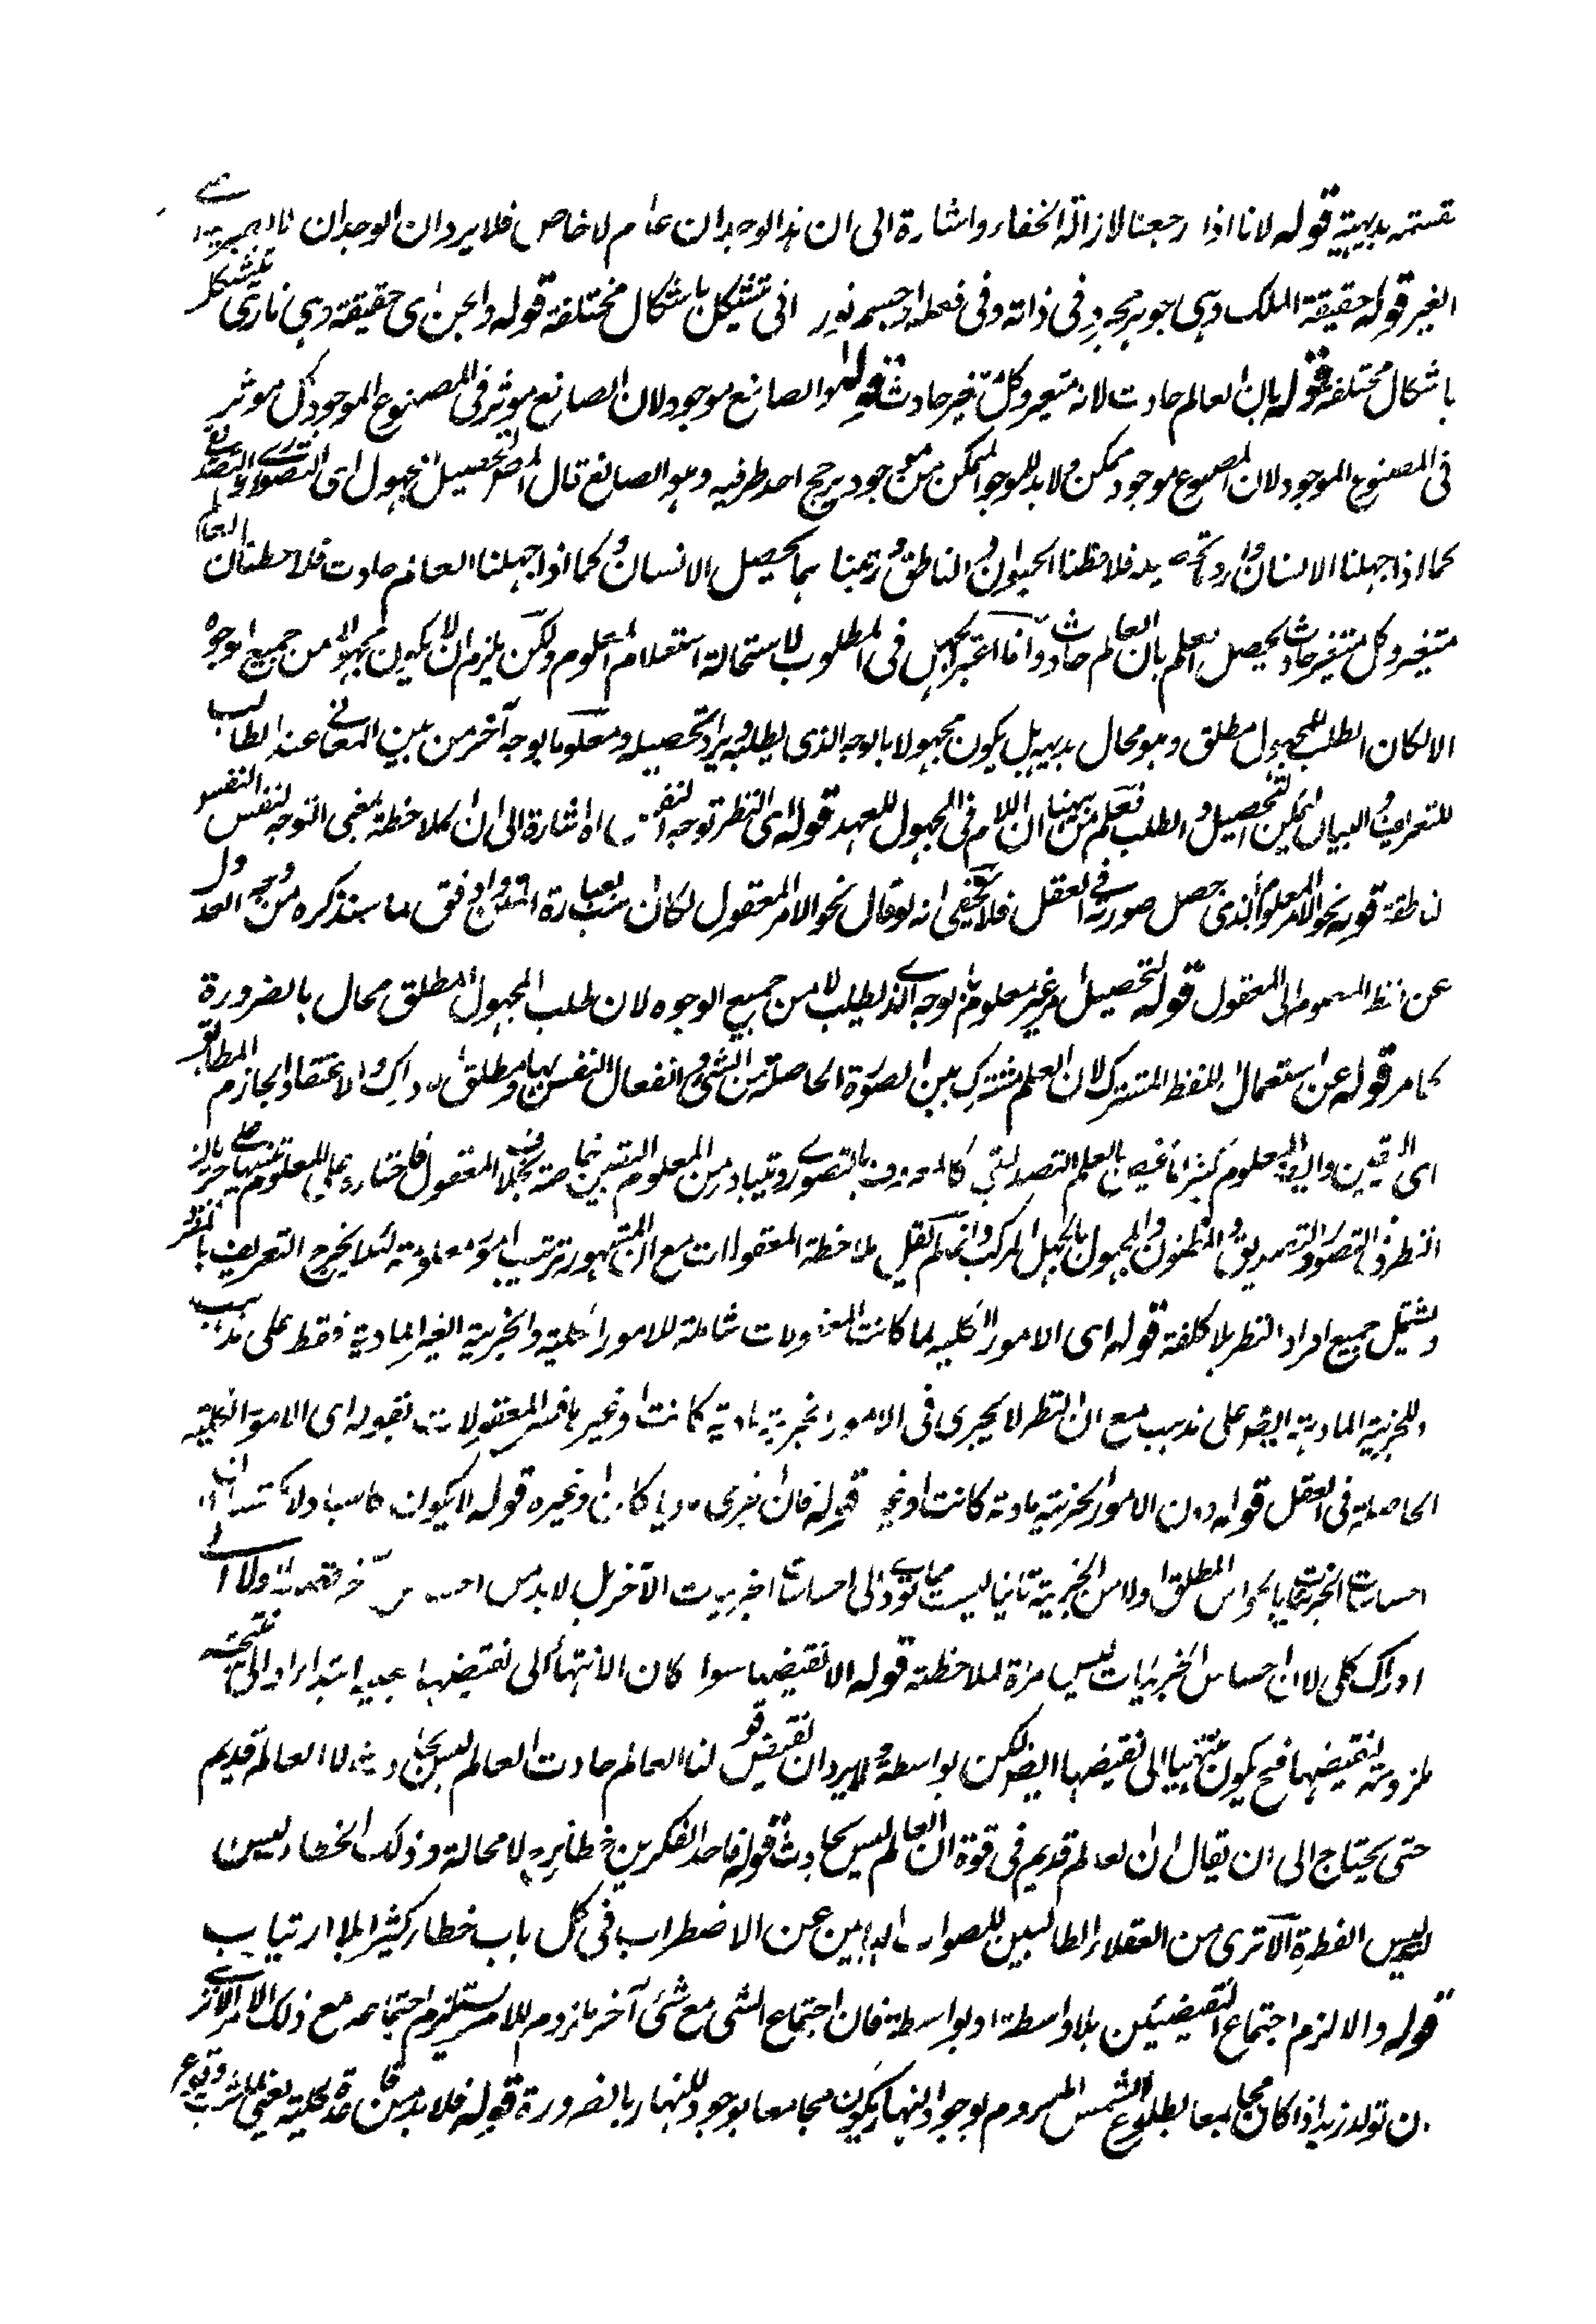 قسمته بديهية قوله لانا اذا رجعنا لازالة الخفاء واشارة الى ان هذا الوجدان عام لا خاص فلا يرد ان الوجدان
الغير قوله حقيقة الملك وهى جوهر مجرد فى ذاته وفى فعله او جسم نورانى تتشكل باشكال مختلفة قوله والجن اى حقيقة وهى نارى تتشكل
باشكال مختلفة قوله بان العالم حادث لانه متغير وكل متغير حادث قوله الصانع موجود لان الصانع موثر فى المصنوع الموجود وكل موثر
فى المصنوع الموجود لان المصنوع موجود ممكن ولا بد للموجود الممكن من موجود يرجح احد طرفيه وهو الصانع قال المص لتحصيل المجهول اى التصورى والتصديقى
كما اذا جهلنا الانسان واردنا تحصيله فلاحظنا الحيوان والناطق ورتبناهما يحصل الانسان وكما اذا جهلنا العالم حادث فلاحظنا ان العالم
متغير وكل متغير حادث يحصل العلم بان العالم حادث وانما اعتبر الجهل فى المطلوب لاستحالة استعلام المعلوم ولكن يلزم ان لا يكون مجهولا من جميع الوجوه
الا لكان الطلب للمجهول مطلق وهو محال بديهة بل يكون مجهولا بالوجه الذى يطلب ويراد تحصيله ومعلوما بوجه آخر من بين المعانى عند الطالب
للتعريف والبيان ليمكن التحصيل والطلب فعلم من ههنا ان اللام فى المجهول للعهد قوله اى النظر توجه النفس اه اشارة الى ان الملاحظة بمعنى التوجه لنفس النفس
ناطقة قوله نحو الامر المعلوم الذى حصل صورته فى العقل فلا يخفى انه لو قال نحو الامر المعقول لكان انسب بعبارة المتن واوفق لما سنذكره من وجه العدول
عن لفظ المعلوم الى المعقول قوله لتحصيل امر غير معلوم من الوجه الذى يطلب لا من جميع الوجوه لان طلب المجهول المطلق محال بالضرورة
كما مر قوله عن استعمال اللفظ المشترك لان العلم مشترك بين الصورة الحاصلة من الشئ وانفعال النفس بها ومطلق الادراك والاعتقاد الجازم المطابق
اى اليقين وايضا المعلوم كثيرا ما يختص بالعلم التصديقى كالمعروف بالتصورى ويتبادر من المعلوم اليقين خاصة بخلاف المعقول فاختاره على المعلوم تنبيها على جريان
النظر فى التصور والتصديق والمظنون والمجهول بالجهل المركب وانما لم يقل ملاحظة المعقولات مع ان المشهور ترتيب امور معلومة لئلا يخرج التعريف بالمفرد
ويشتمل جميع افراد النظر بلا كلفة قوله اى الامور الكلية لما كانت المعقولات شاملة للامور الكلية والجزئية الغير المادية فقط على مذهب
وللجزئية المادية ايضا على مذهب مع ان النظر لا يجرى فى الامور الجزئية مادية كانت او غيرها فسر المعقولات بقوله اى الامور الكلية
الحاصلة فى العقل قوله دون الامور الجزئية مادية كانت او غيرها قوله فان الجزئى ماديا كان او غيره قوله لا يكون كاسبا ولا مكتسبا
احساسات الجزئيات بالحواس المطلق اولا من الجزئية ثانيا ليست مما يودى الى احساسات الجزئيات الآخر بل لا بد من
ادراك كلى لا ان احساس الجزئيات ليس مرآة لملاحظة قوله الا نقيضها سواء كان الانتهاء الى نقيضها ابتداء او الى
ملزومة لنقيضها فح يكون منتهيا الى نقيضها ايضا لكن بواسطة ولا يرد ان نقيض قولنا العالم حادث العالم ليس بحادث لا العالم قديم
حتى يحتاج الى ان يقال ان العالم قديم فى قوة ان العالم ليس بحادث قوله فاحد الفكرين خطأ لا محالة وذلك الخطاء ليس
ليس الفطرة الا ترى من العقلاء الطالبين للصواب الهاربين عن الاضطراب فى كل باب خطاء كثيرا بلا ارتياب
قوله والا لزم اجتماع النقيضين بلا واسطة او بواسطة فان اجتماع الشئ مع شئ آخر ملزوم للامر يستلزم اجتماعه مع ذلك الامر
ان تولد زيد اذا كان مجامعا بطلوع الشمس الملزوم لوجود النهار يكون مجامعا بوجود للنهار بالضرورة قوله فلا بد من قاعدة كلية